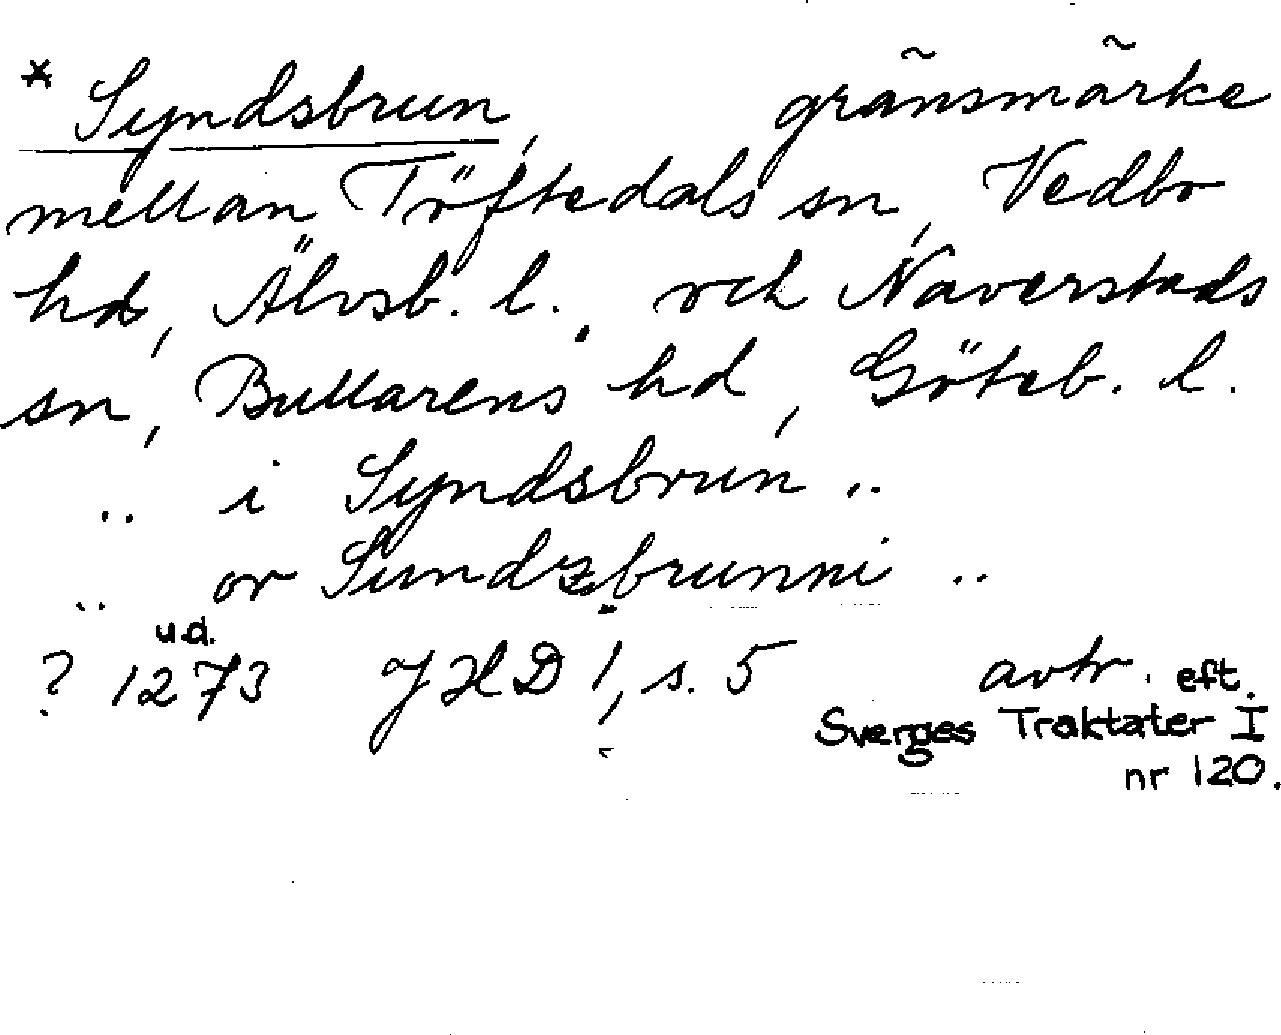 * Syndsbrun, gränsmärke
mellan Töftedals sn, Vedbo
hd, Älvsb. l., och Naverstads
sn, Bullarens hd, Göteb. l.
.. i Syndsbrun ..
.. or Sundzbrunni ..
u.d.
? 1273 JHD 1, s. 5 avtr. eft.
Sverges Traktater I
nr 120.